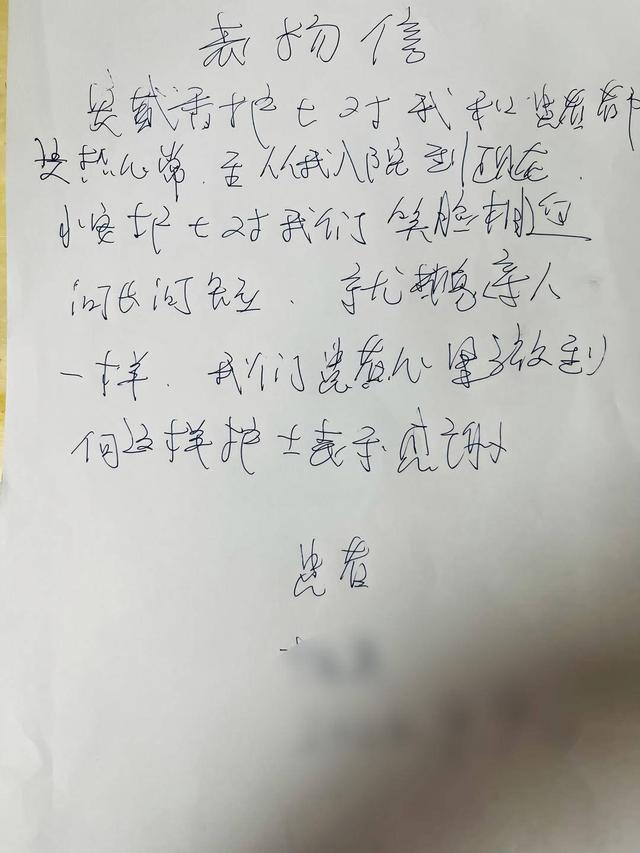 表扬信
护士对我和患者都
热心常.至从我入院到现在.
小安护士对我们笑脸相迎
问长问短.就像亲人
一样.我们患者心里激到
向这样护士表示感谢
患者